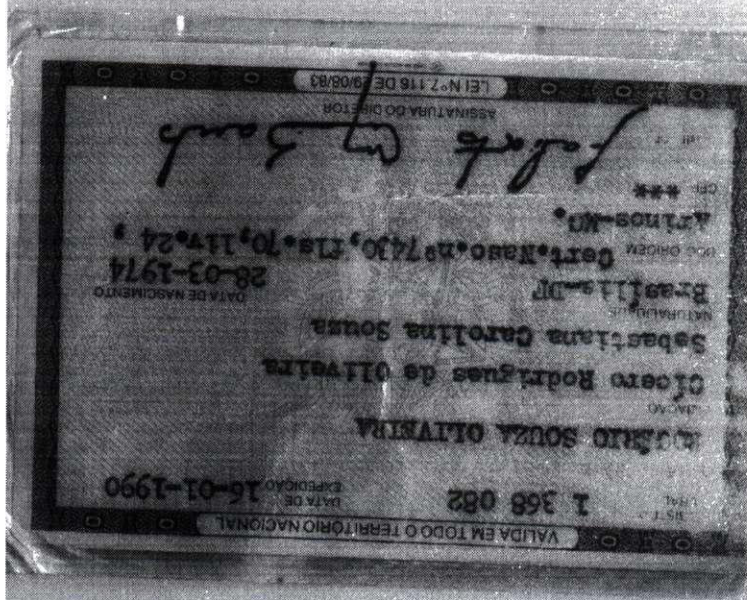 VALIDA EM TODO O TERRITÓRIO NACIONAL
1 368 082 DATA DE EXPEDIÇÃO 16-01-1990
ROGÉRIO SOUZA OLIVEIRA
Cícero Rodrigues de Oliveira
Sebastiana Carolina Souza
DATA DE NASCIMENTO
Brasília-DF 28-03-1974
DOC ORIGEM Cert.Nasc.nº7430, fls.70, liv.24 ,
Arinos-MG.
CPF ***
ASSINATURA DO DIRETOR
LEI Nº 7.116 DE 29/08/83